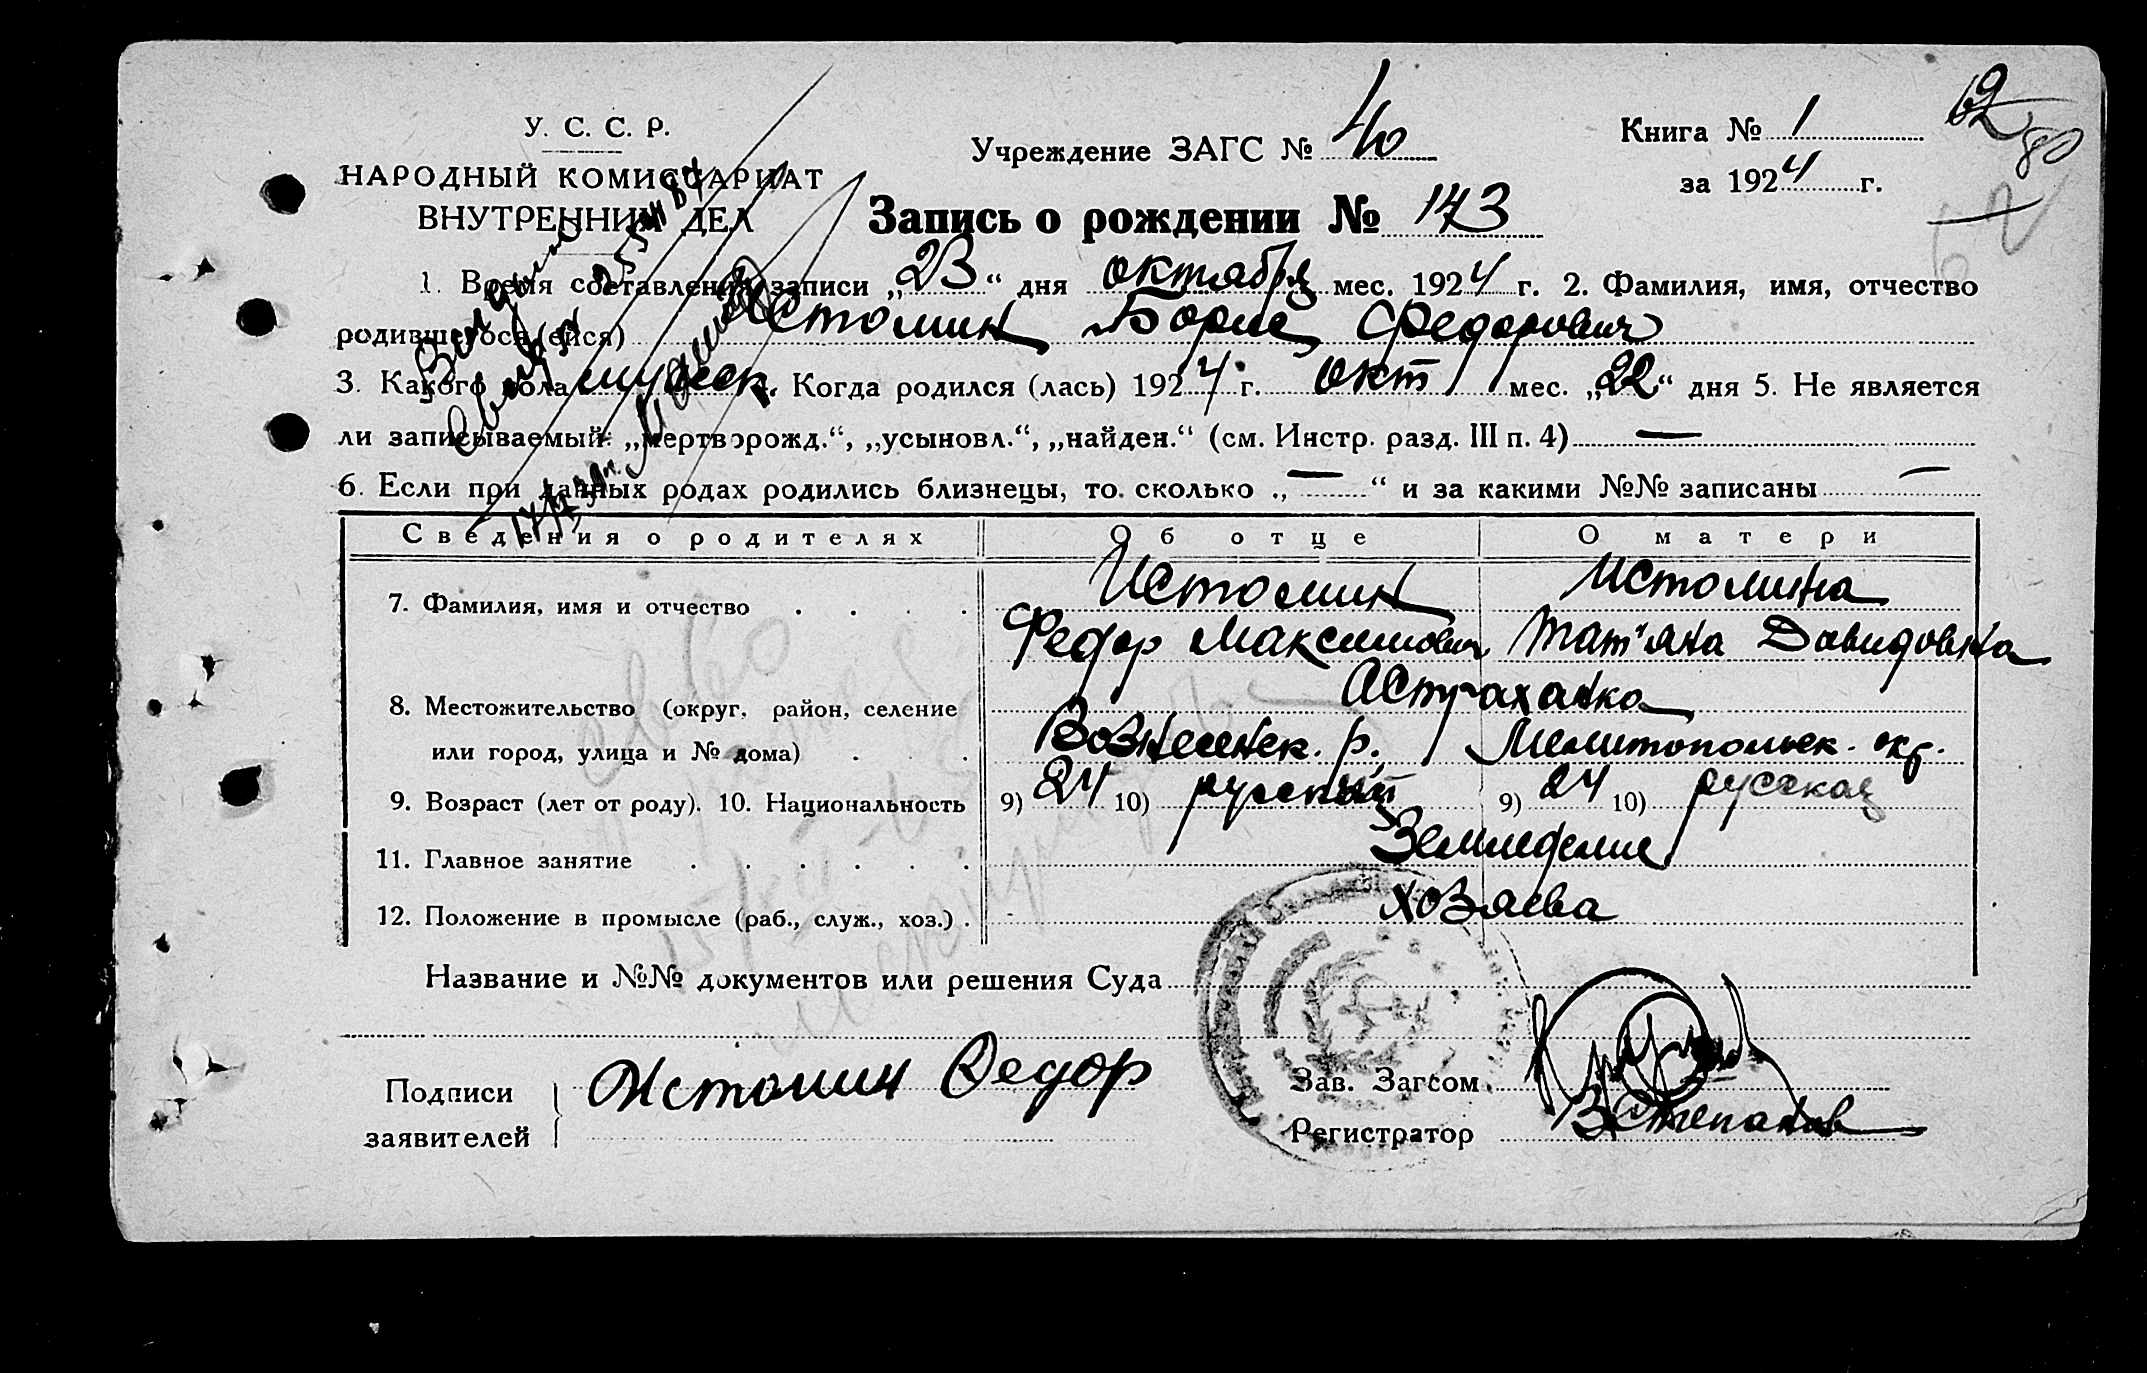 У. С. С. Р.
НАРОДНЫЙ КОМИССАРИАТ
ВНУТРЕННИХ ДЕЛ
Учреждение ЗАГС №
Книга № 1
за 1924 г.
Запись о рождении № 173
1. Время составления записи „23“ дня октября мес. 1924 г. 2. Фамилия, имя, отчество
родившегося (ейся) Истомин Борис Федорович
3. Какого пола мужеск. 4. Когда родился (лась) 1924 г. окт мес. „22“ дня 5. Не является
ли записываемый: „мертворожд.“, „усыновл.“, „найден.“ (см. Инстр. разд. III п. 4) —
6. Если при данных родах родились близнецы, то. сколько „—“ и за какими №№ записаны —
Сведения о родителях Об отце О матери
7. Фамилия, имя и отчество Истомин Истомина
Федор Максимович Тат'яна Давидовна
8. Местожительство (округ, район, селение Астраханка
или город, улица и № дома) Вознесенск. р. Мелитопольск. окр.
9. Возраст (лет от роду). 10. Национальность 9) 24 10) русский 9) 24 10) русская
11. Главное занятие Земледелие
12. Положение в промысле (раб., служ., хоз.) хозяева
Название и №№ документов или решения Суда
Подписи заявителей Истомин Федор
Зав. Загсом
Регистратор ВСтепанов